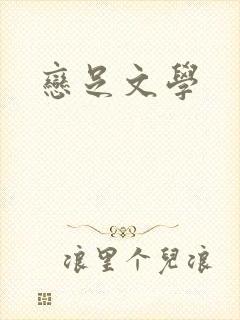 戀足文學
浪里个兒浪